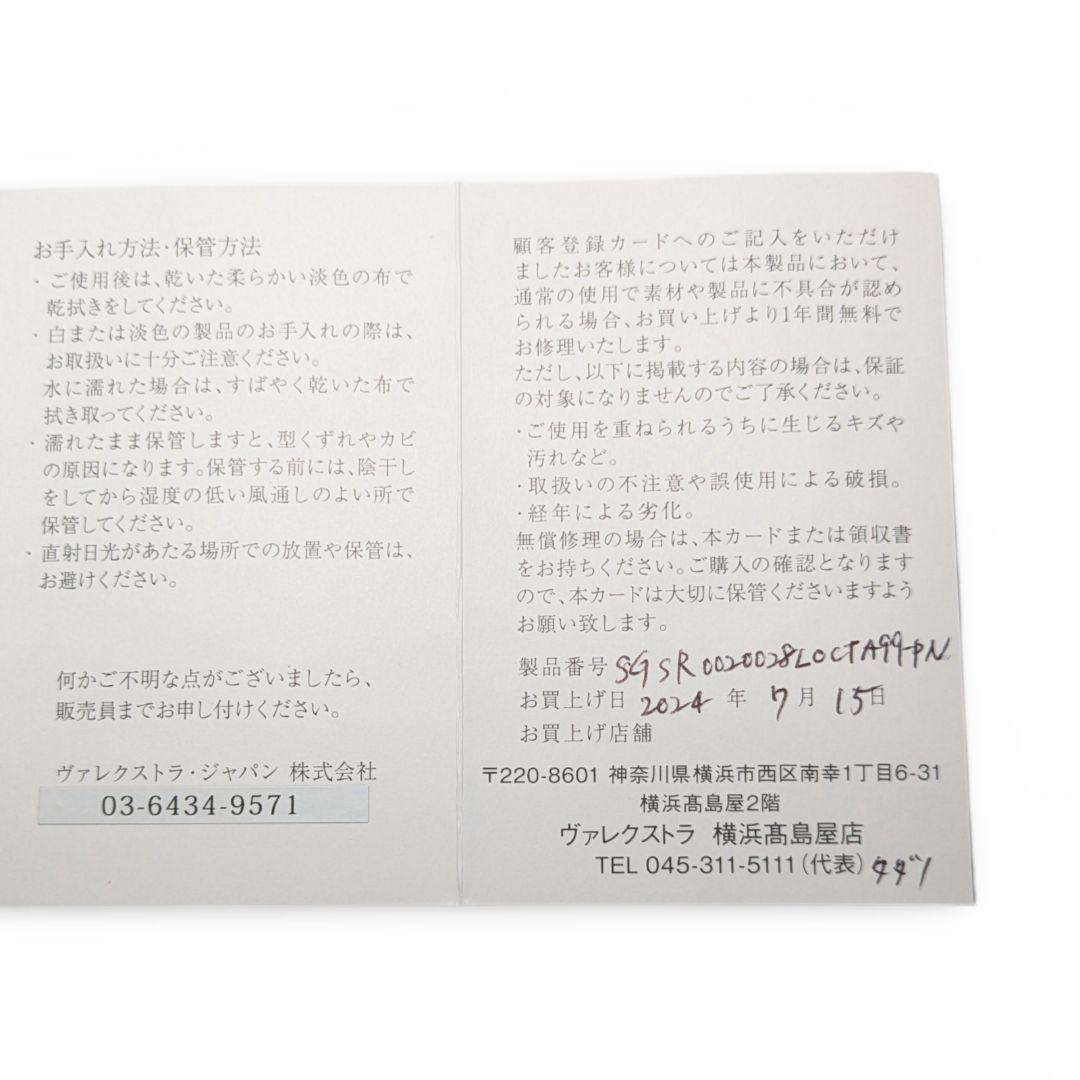 お手入れ方法・保管方法
・ご使用後は、乾いた柔らかい淡色の布で
乾拭きをしてください。
・白または淡色の製品のお手入れの際は、
お取扱いに十分ご注意ください。
水に濡れた場合は、すばやく乾いた布で
拭き取ってください。
・濡れたまま保管しますと、型くずれやカビ
の原因になります。保管する前には、陰干し
をしてから湿度の低い風通しのよい所で
保管してください。
・直射日光があたる場所での放置や保管は、
お避けください。
何かご不明な点がございましたら、
販売員までお申し付けください。
ヴァレクストラ・ジャパン 株式会社
03-6434-9571
顧客登録カードへのご記入をいただけ
ましたお客様については本製品において、
通常の使用で素材や製品に不具合が認め
られる場合、お買い上げより1年間無料で
お修理いたします。
ただし、以下に掲載する内容の場合は、保証
の対象になりませんのでご了承ください。
・ご使用を重ねられるうちに生じるキズや
汚れなど。
・取扱いの不注意や誤使用による破損。
・経年による劣化。
無償修理の場合は、本カードまたは領収書
をお持ちください。ご購入の確認となります
ので、本カードは大切に保管くださいますよう
お願い致します。
製品番号 SGSR0020028LOCTA99-PN
お買上げ日 2024 年 7 月 15 日
お買上げ店舗
〒220-8601 神奈川県横浜市西区南幸1丁目6-31
横浜髙島屋2階
ヴァレクストラ 横浜髙島屋店
TEL 045-311-5111（代表）